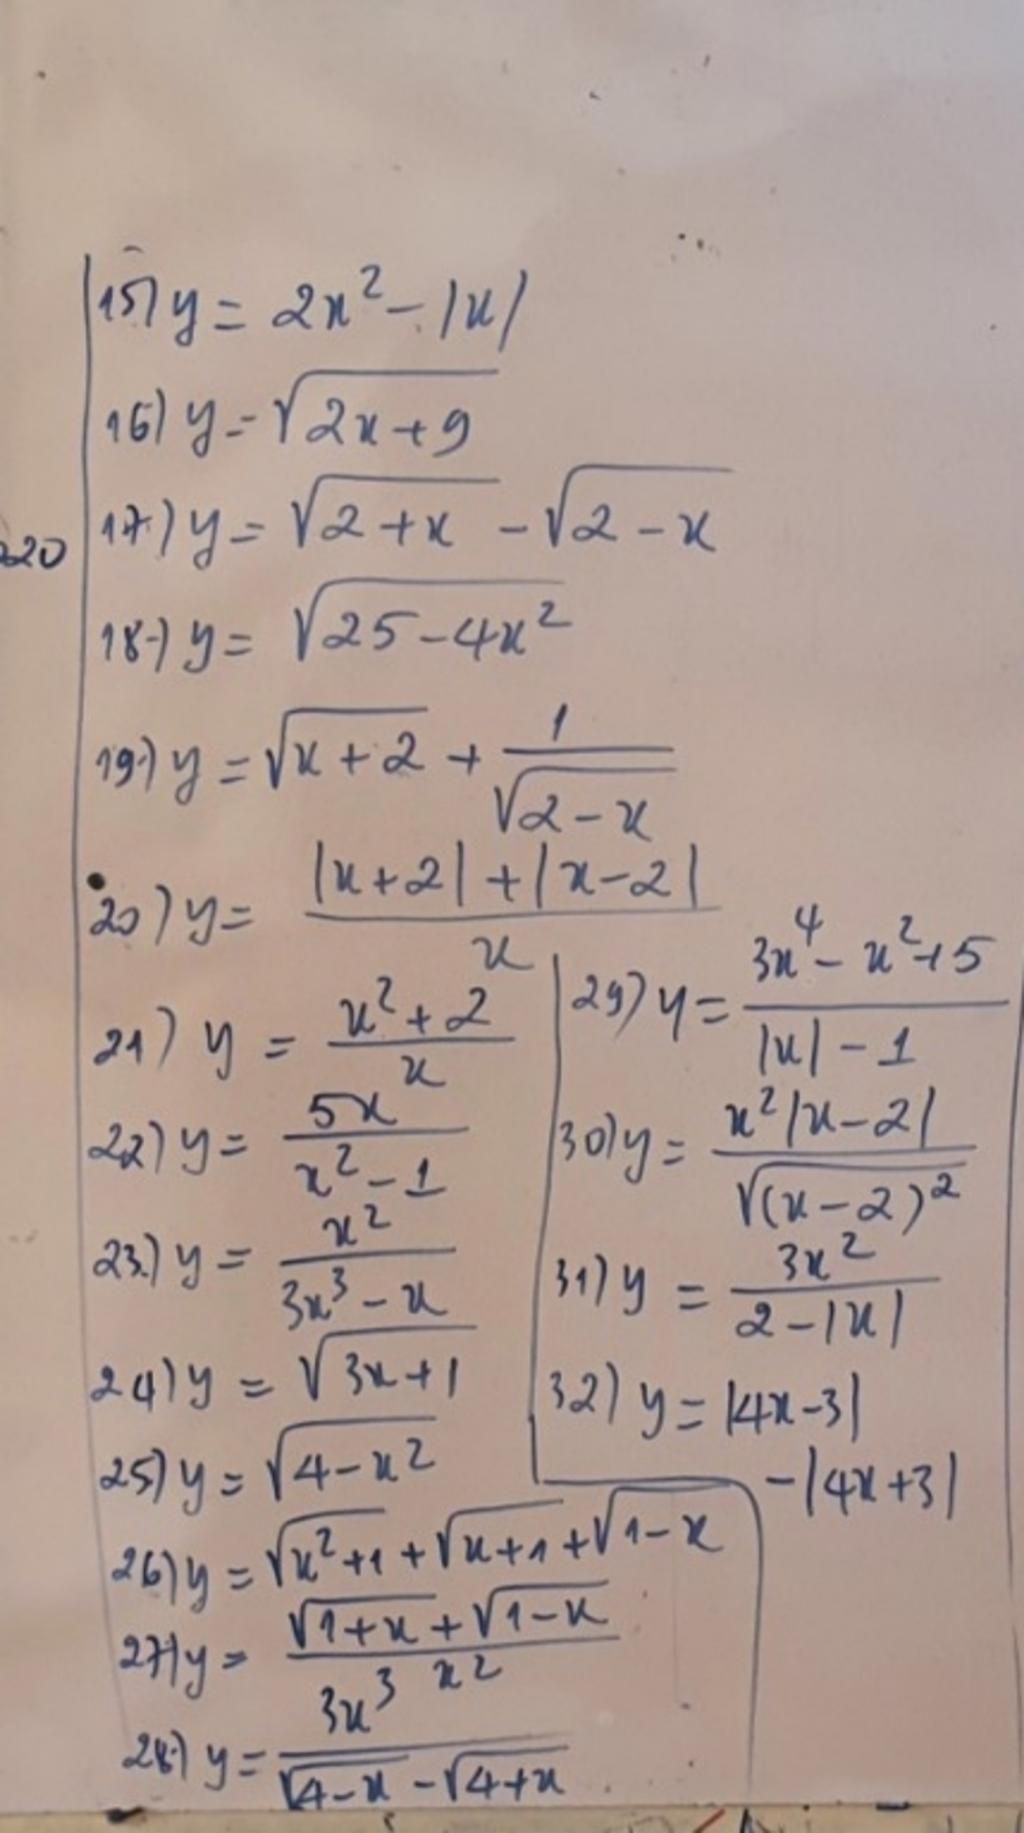 15) y = 2x² - |x|
16) y = √(2x+9)
17) y = √(2+x) - √(2-x)
20
18) y = √(25-4x²)
19) y = √(x+2) + 1/√(2-x)
20) y = (|x+2|+|x-2|)/x
21) y = (x²+2)/x
22) y = 5x/(x²-1)
23) y = x²/(3x³-x)
24) y = √(3x+1)
25) y = √(4-x²)
26) y = √(x²+1) + √(x+1) + √(1-x)
27) y = (√(1+x)+√(1-x))/x²
28) y = 3x³/(√(4-x)-√(4+x))
29) y = (3x⁴-x²+5)/(|x|-1)
30) y = x²|x-2|/√((x-2)²)
31) y = 3x²/(2-|x|)
32) y = |4x-3|
-|4x+3|